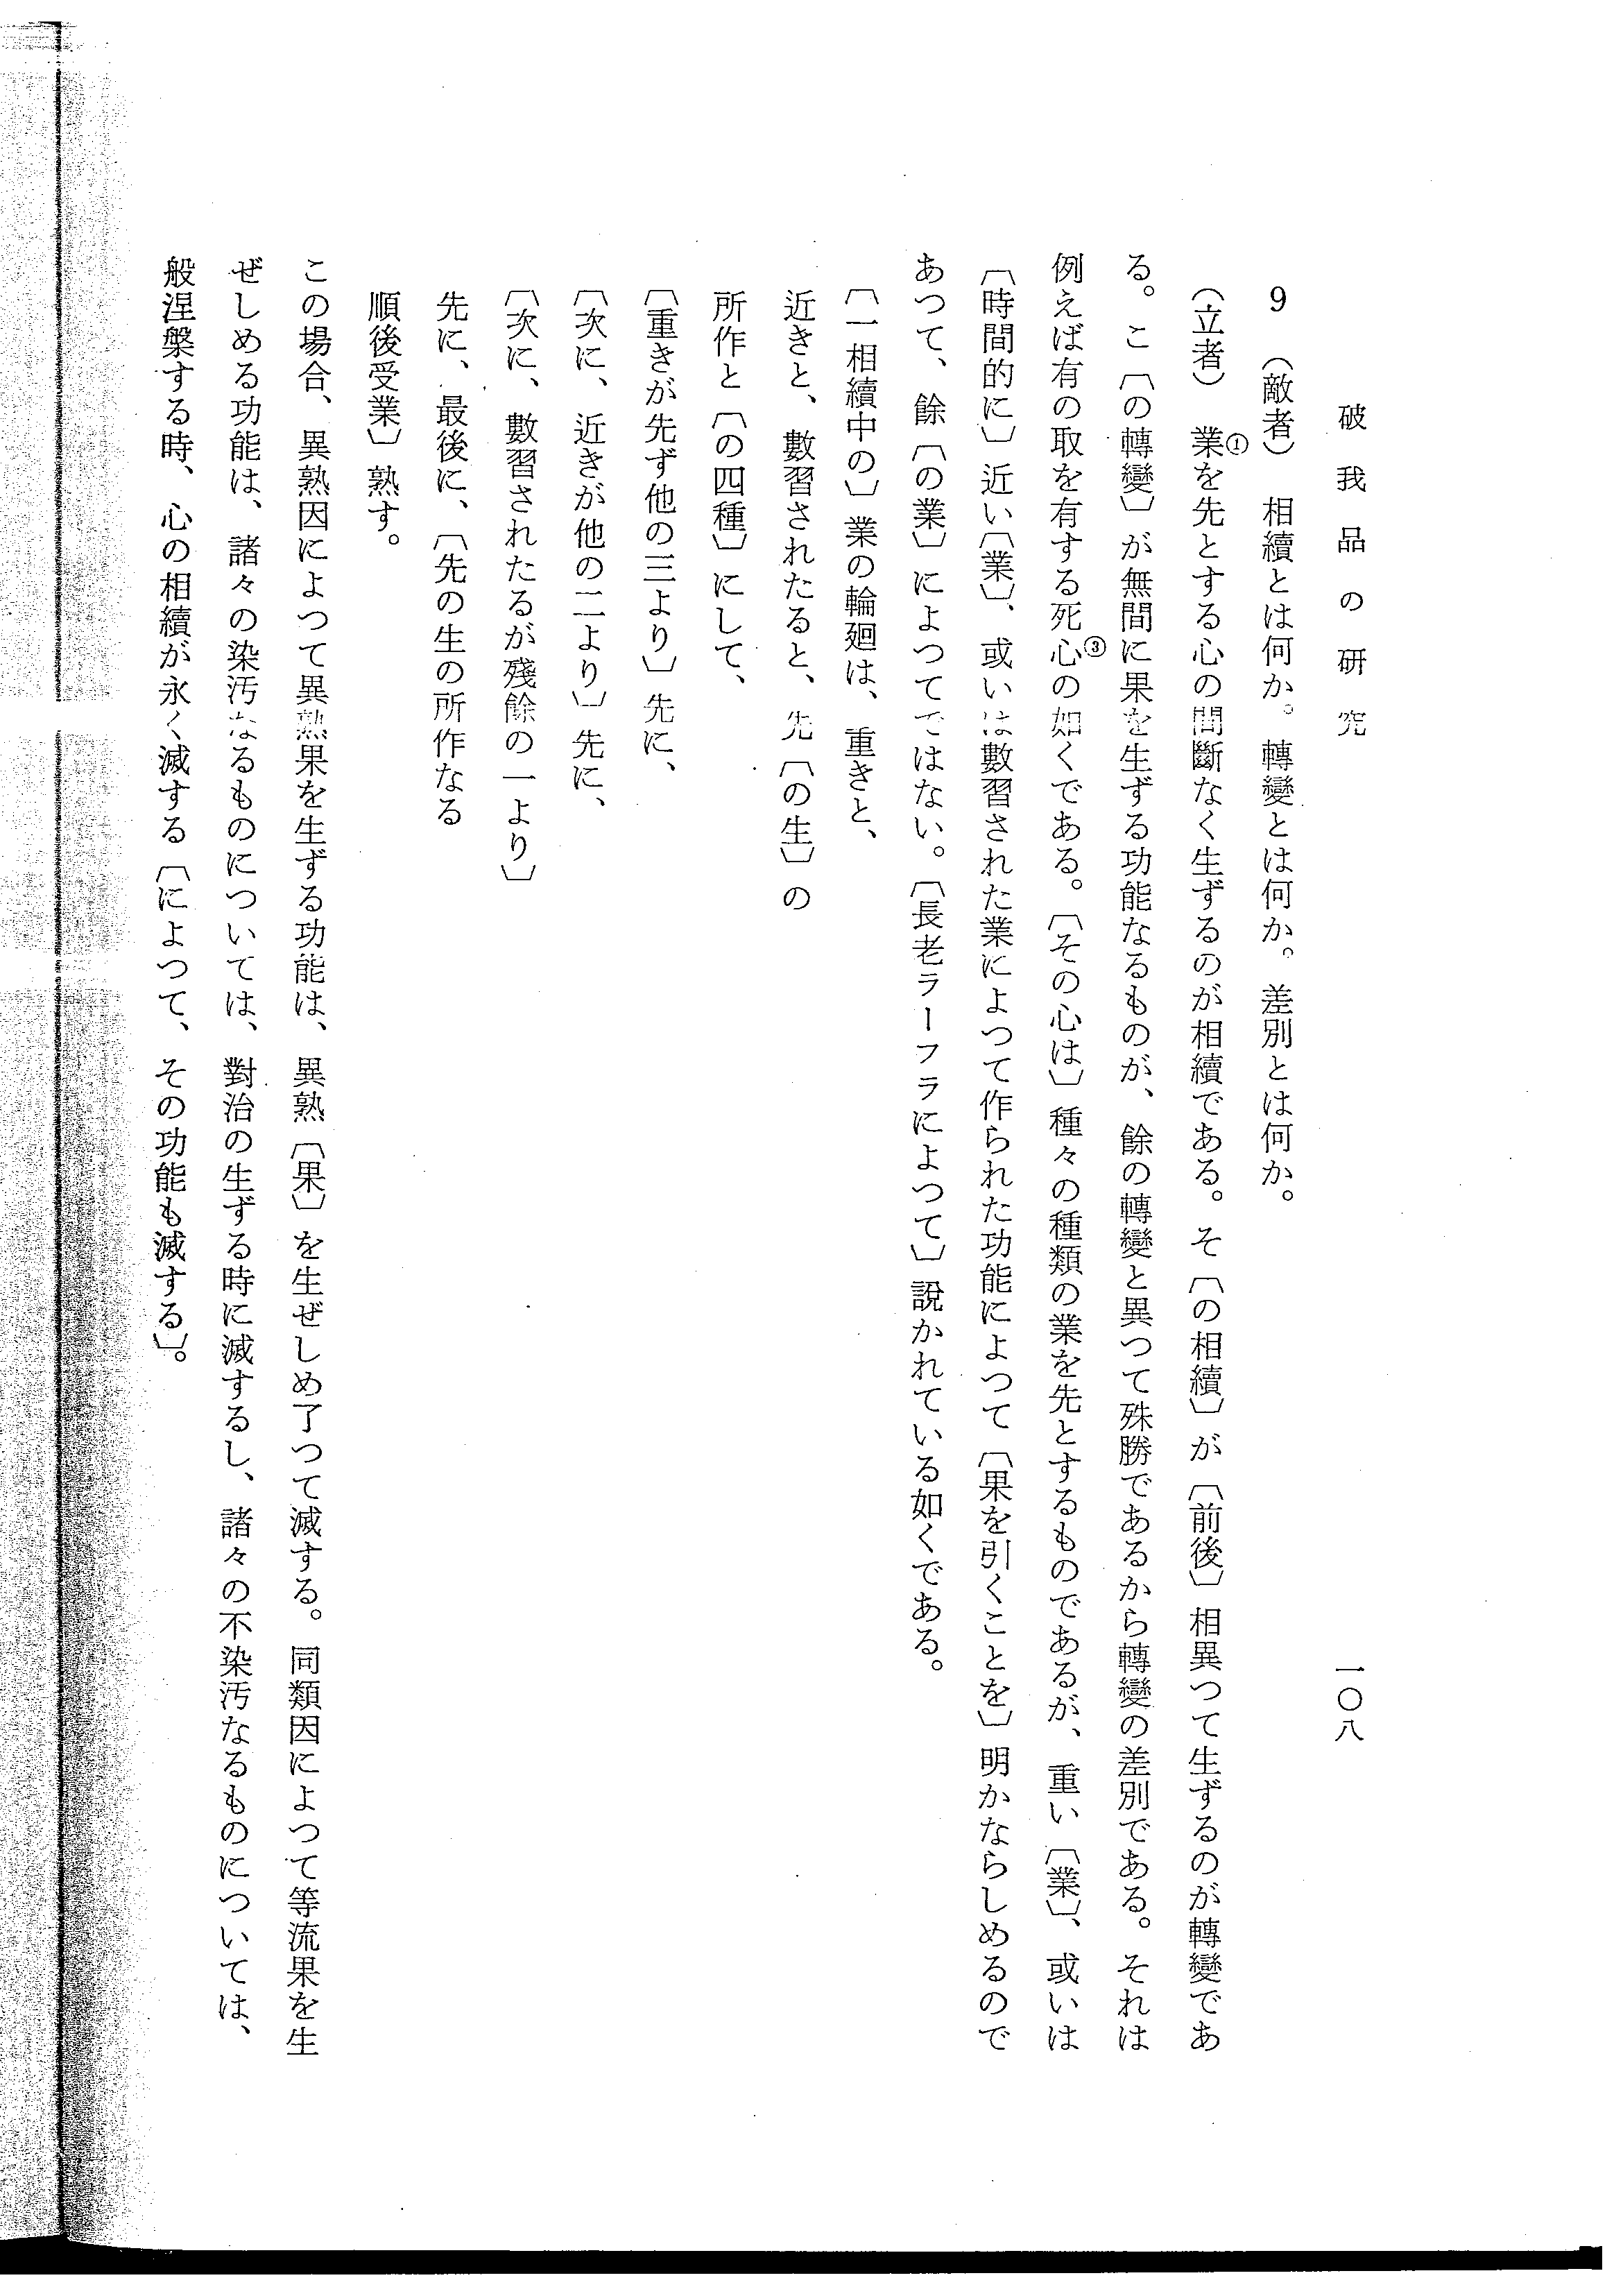 破我品の研究
一〇八
9　（敵者）　相續とは何か。轉變とは何か。差別とは何か。
（立者）　業①を先とする心の間斷なく生ずるのが相續である。そ〔の相續〕が〔前後〕相異つて生ずるのが轉變であ
る。こ〔の轉變〕が無間に果を生ずる功能なるものが、餘の轉變と異つて殊勝であるから轉變の差別である。それは
例えば有の取を有する死心③の如くである。〔その心は〕種々の種類の業を先とするものであるが、重い〔業〕、或いは
〔時間的に〕近い〔業〕、或いは數習された業によつて作られた功能によつて〔果を引くことを〕明かならしめるので
あつて、餘〔の業〕によつてではない。〔長老ラーフラによつて〕說かれている如くである。
〔一相續中の〕業の輪廻は、重きと、
近きと、數習されたると、先〔の生〕の
所作と〔の四種〕にして、
〔重きが先ず他の三より〕先に、
〔次に、近きが他の二より〕先に、
〔次に、數習されたるが殘餘の一より〕
先に、最後に、〔先の生の所作なる
順後受業〕熟す。
この場合、異熟因によつて異熟果を生ずる功能は、異熟〔果〕を生ぜしめ了つて滅する。同類因によつて等流果を生
ぜしめる功能は、諸々の染汚なるものについては、對治の生ずる時に滅するし、諸々の不染汚なるものについては、
般涅槃する時、心の相續が永く滅する〔によつて、その功能も滅する〕。